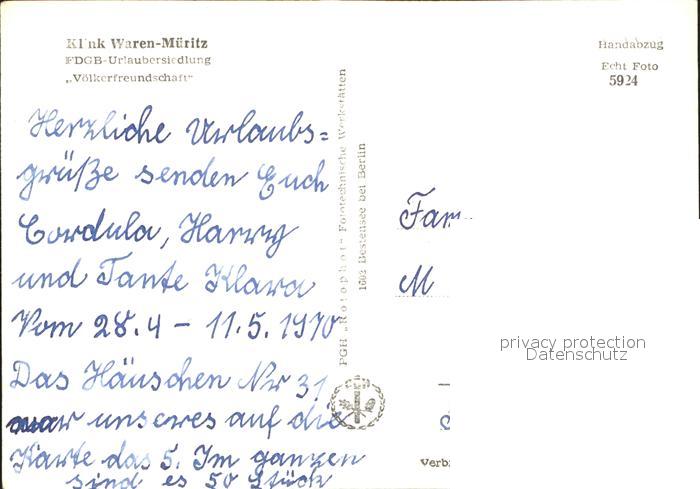 Klink Waren-Müritz
FDGB-Urlaubersiedlung
„Völkerfreundschaft“
Handabzug
Echt Foto
5924
Herzliche Urlaubs=
grüße senden Euch
Cordula, Harry
und Tante Klara
Vom 28.4 – 11.5. 1970
Das Häuschen Nr 31
war unseres auf die
Karte das 5. Im ganzen
sind es 50 Stück
PGH „Rotophot“ Fototechnische Werkstätten
1602 Bestensee bei Berlin
Fam
M
privacy protection
Datenschutz
Verb